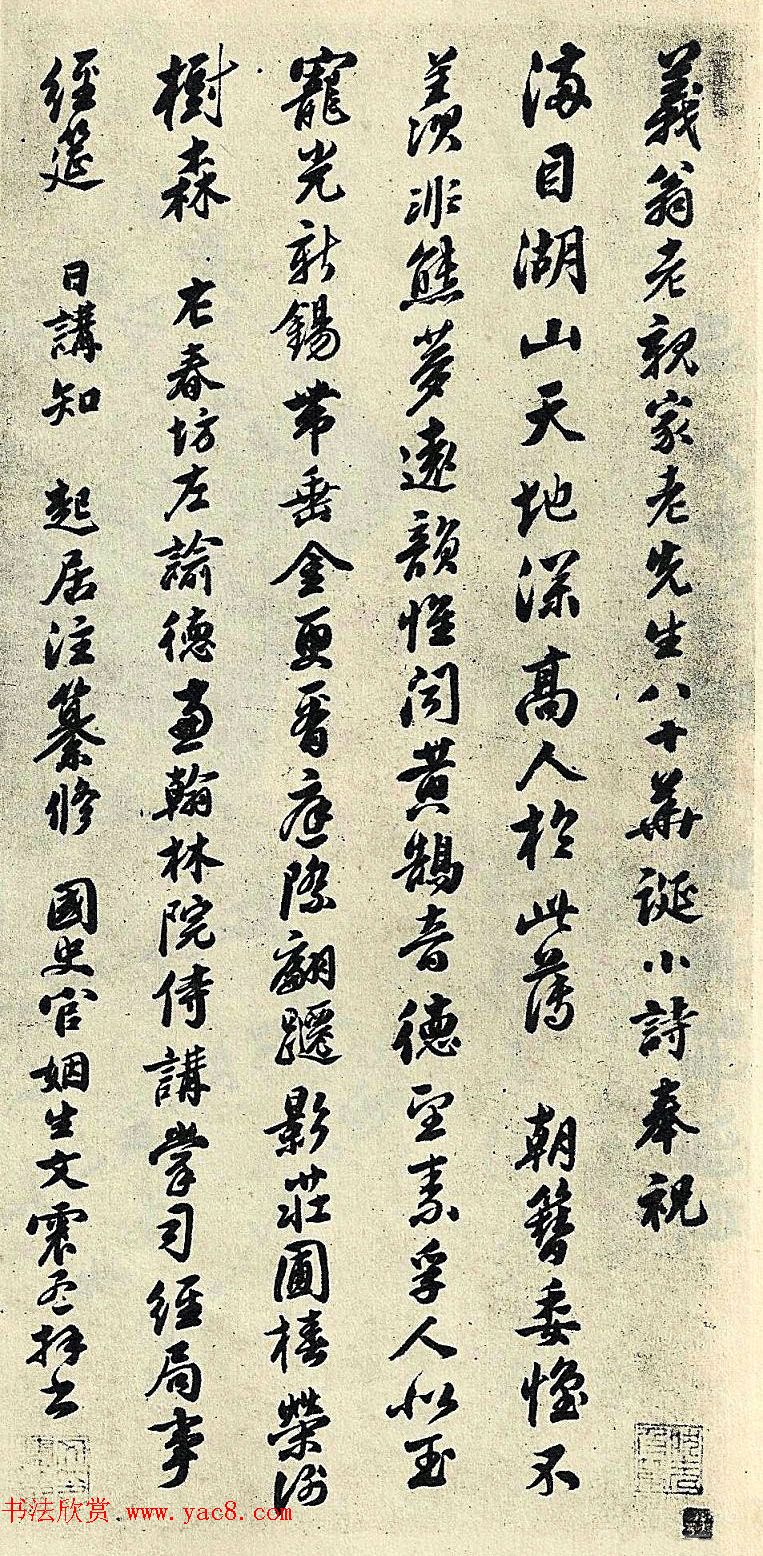 義翁老親家老先生八十華誕小詩奉祝
滿目湖山天地深高人於此薄 朝簪委怀不
羨須非熊夢遠韻惟聞黃鵠音德望素孚人似玉
寵光新錫帶垂金更看庭際翩躚影莊圃椿榮謝
樹森 右春坊左諭德兼翰林院侍講掌司經局事
經筵 日講知 起居注纂修 國史官姻生文震孟拜書
书法欣赏 www.yac8.com